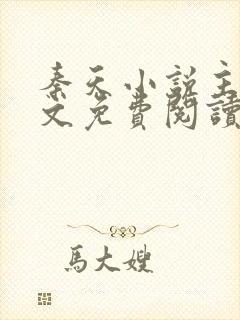 秦天小說主
文免費閱讀
馬大嫂